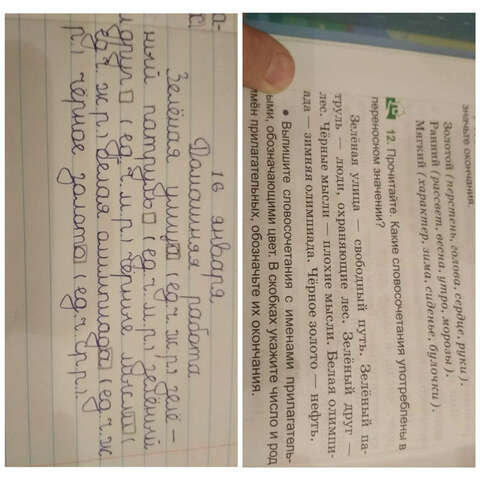 16 января
Домашняя работа
Зелёная улица (ед.ч. ж.р.) зелё-
ный патруль (ед.ч. м.р.) зелёный
друг (ед.ч. м.р.) чёрные мысли (
ед.ч. ж.р.) белая олимпиада (ед.ч. ж
р.) чёрное золото (ед.ч. ср.р.)
значьте окончания.
Золотой (перстень, голова, сердце, руки).
Ранний (рассвет, весна, утро, морозы).
Мягкий (характер, зима, сиденье, булочки).
12. Прочитайте. Какие словосочетания употреблены в
переносном значении?
Зелёная улица — свободный путь. Зелёный па-
труль — люди, охраняющие лес. Зелёный друг —
лес. Чёрные мысли — плохие мысли. Белая олимпи-
ада — зимняя олимпиада. Чёрное золото — нефть.
• Выпишите словосочетания с именами прилагатель-
ыми, обозначающими цвет. В скобках укажите число и род
имён прилагательных, обозначьте их окончания.